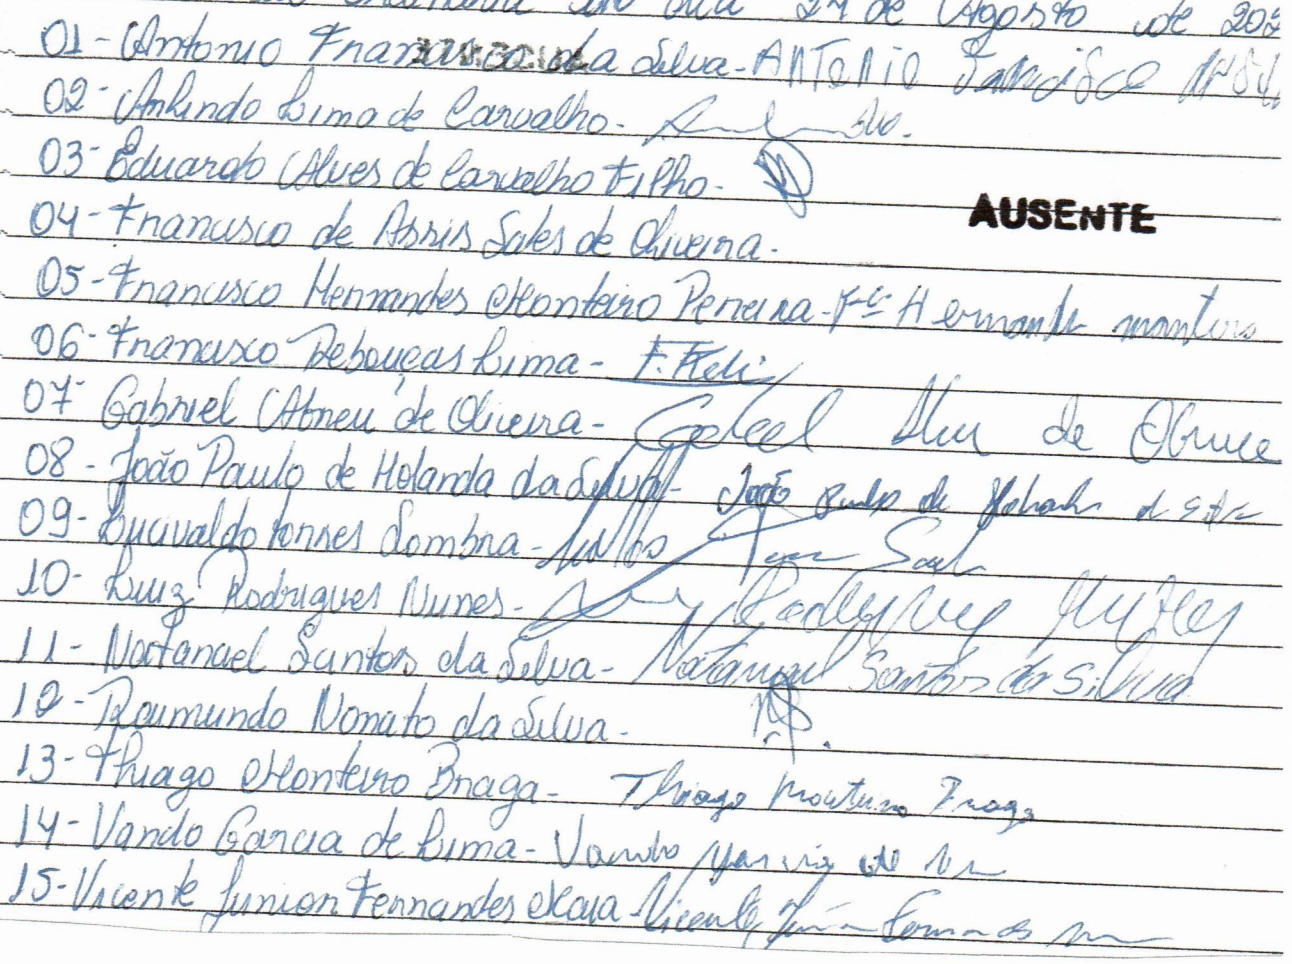 27 de Agosto de 202
01- Antonio Francisco da Silva - ANTONIO Francisco
02- Anhindo Lima de Carvalho -
03- Eduardo Alves de Carvalho Filho -
AUSENTE
04- Francisco de Assis Sales de Oliveira -
05- Francisco Hernandes Monteiro Pereira - Fco Hernands monteiro
06- Francisco Rebouças Lima - F. Feli
07- Gabriel Abreu de Oliveira - Gabriel Abreu de Olivei
08- João Paulo de Holanda da Silva - João Paulo de Holanda da Silva
09- Lucivaldo torres Sombra -
10- Luiz Rodrigues Nunes - Rodrigues Nunes
11- Natanael Santos da Silva - Natanael Santos da Silva
12- Raimundo Nonato da Silva -
13- Thiago Monteiro Braga - Thiago Monteiro Braga
14- Vando Garcia de Lima - Vando Garcia de
15- Vicente Junior Fernandes Maia - Vicente Júnior Fernandes